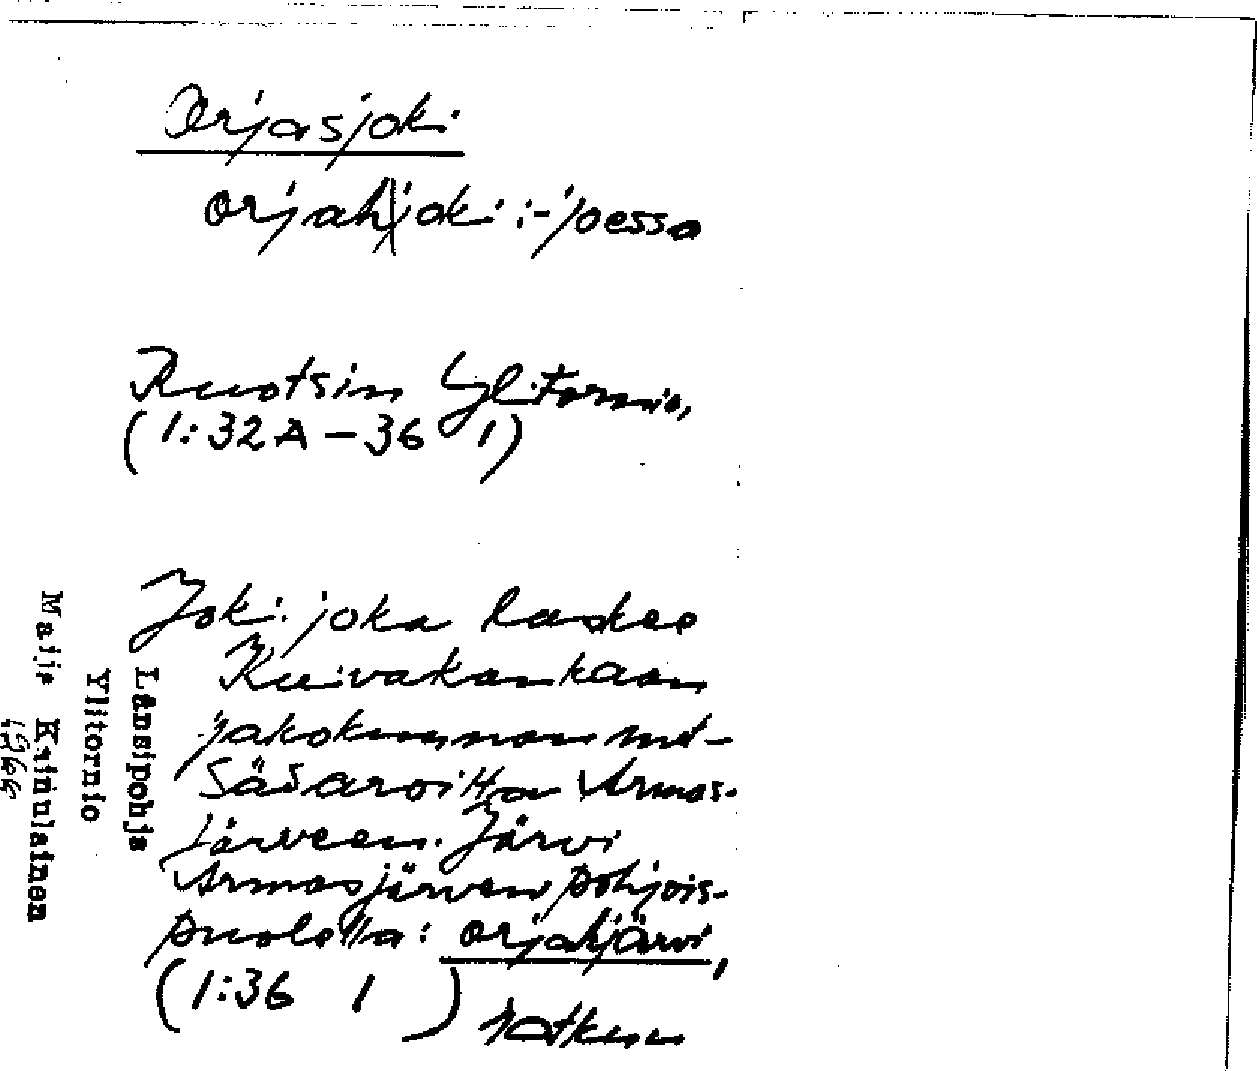 Orjasjoki
orjahjoki : -joessa
Ruotsin Ylitornio,
(1:32A – 36 1)
Joki joka laskee
Kuivakankaan
jakokunnan met-
säsaroilta Armas-
järveen. Järvi
Armasjärven pohjois-
puolella: orjahjärvi,
(1:36 1 ) jatkuu
Länsipohja
Ylitornio
Maija Kainulainen
1966